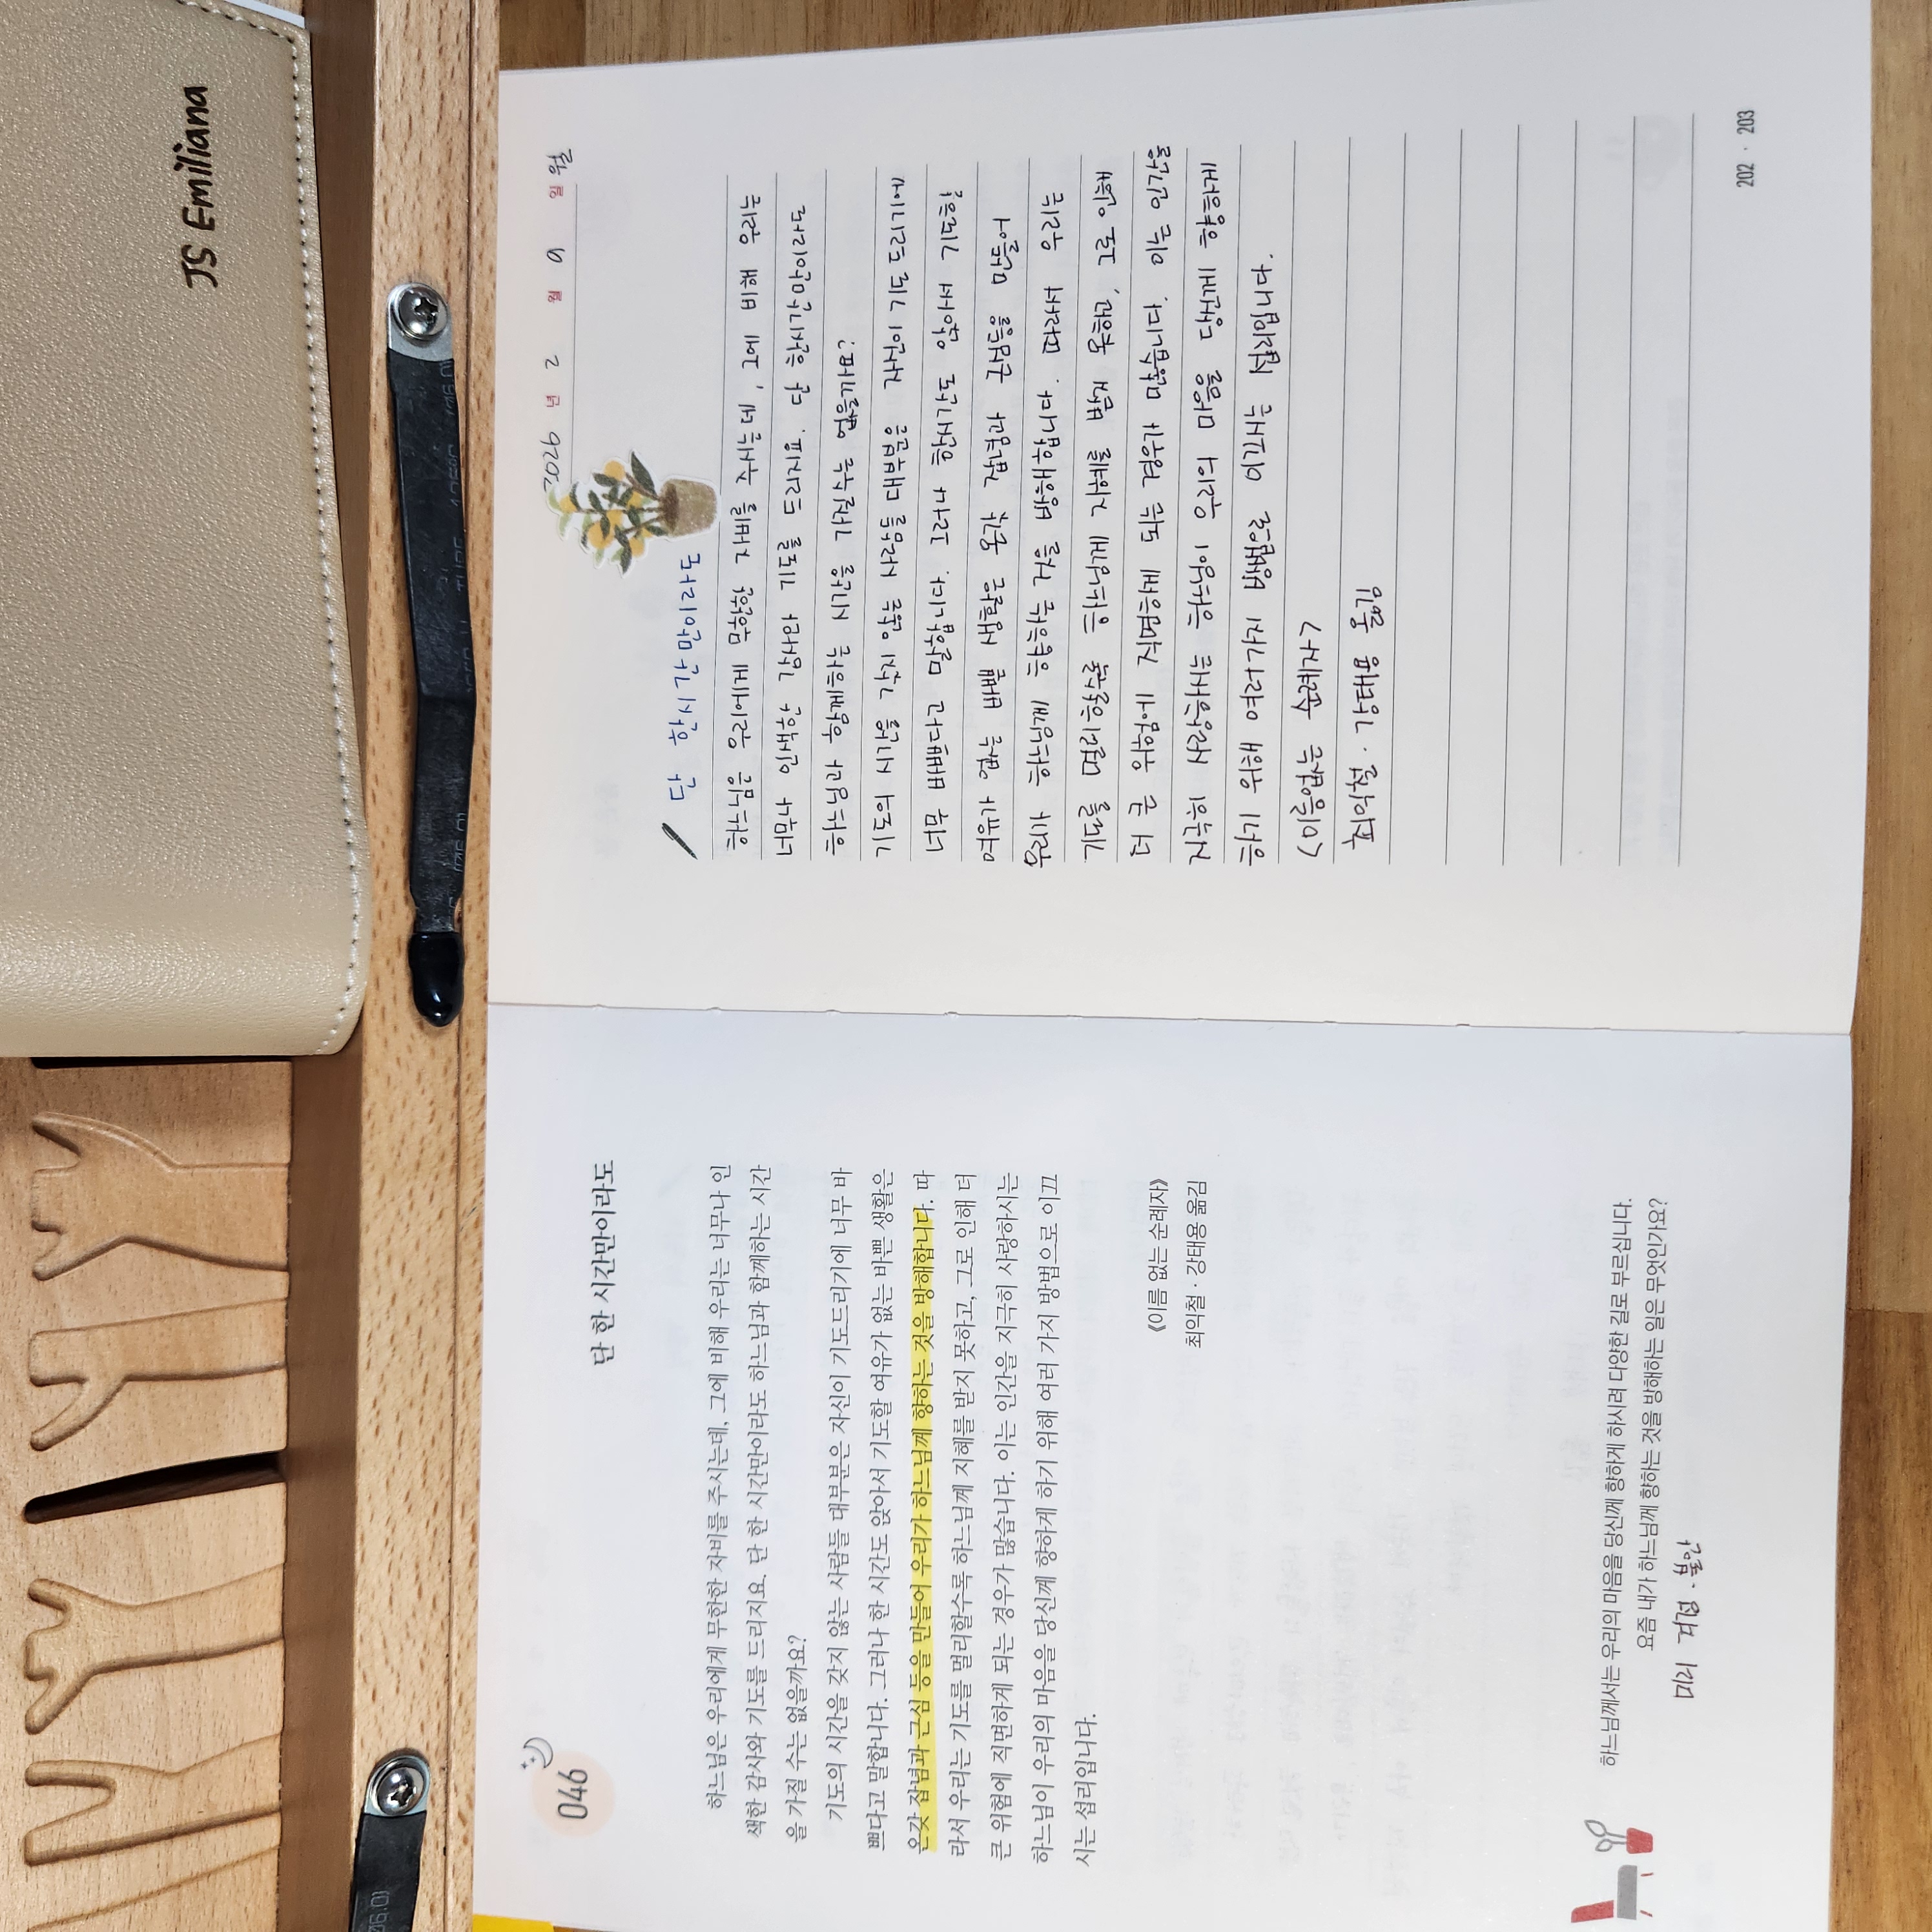 046
단 한 시간만이라도
하느님은 우리에게 무한한 자비를 주시는데, 그에 비해 우리는 너무나 인
색한 감사와 기도를 드리지요. 단 한 시간만이라도 하느님과 함께하는 시간
을 가질 수는 없을까요?
기도의 시간을 갖지 않는 사람들 대부분은 자신이 기도드리기에 너무 바
쁘다고 말합니다. 그러나 한 시간도 앉아서 기도할 여유가 없는 바쁜 생활은
온갖 잡념과 근심 등을 만들어 우리가 하느님께 향하는 것을 방해합니다. 따
라서 우리는 기도를 멀리할수록 하느님께 지혜를 받지 못하고, 그로 인해 더
큰 위험에 직면하게 되는 경우가 많습니다. 이는 인간을 지극히 사랑하시는
하느님이 우리의 마음을 당신께 향하게 하기 위해 여러 가지 방법으로 이끄
시는 섭리입니다.
《이름 없는 순례자》
최익철 · 강태용 옮김
하느님께서는 우리의 마음을 당신께 향하게 하시려 다양한 길로 부르십니다.
요즘 내가 하느님께 향하는 것을 방해하는 일은 무엇인가요?
미리 걱정 · 불안
JS Emiliana
2026 년 2 월 9 일 월
단 한 시간만이라도
하느님은 우리에게 무한한 자비를 주시는데, 그에 비해 우리는
너무나 인색한 감사와 기도를 드리지요. 단 한 시간만이라도
하느님과 함께하는 시간을 가질 수는 없을까요?
기도의 시간을 갖지 않는 사람들 대부분은 자신이 기도드리기에
너무 바쁘다고 말합니다. 그러나 한 시간도 앉아서 기도할
여유가 없는 바쁜 생활은 온갖 잡념과 근심 등을 만들어
우리가 하느님께 향하는 것을 방해합니다. 따라서 우리는
기도를 멀리할수록 하느님께 지혜를 받지 못하고, 그로 인해
더 큰 위험에 직면하게 되는 경우가 많습니다. 이는 인간을
지극히 사랑하시는 하느님이 우리의 마음을 당신께 향하게
하기 위해 여러 가지 방법으로 이끄시는 섭리입니다.
<이름없는 순례자>
최익철 · 강태용 옮김
202 · 203